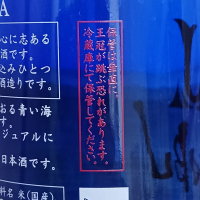 保管は垂直に。
王冠が跳ぶ恐れがあります。
冷蔵庫にて保管してください。
A
心に志ある
酒です。
込みひとつ
酒造りです。
おる青い海
ジュアルに
日本酒です。
料名 米(国産)